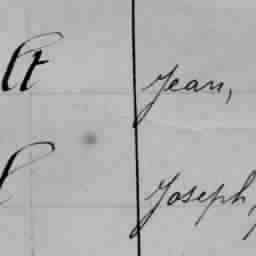 lt Jean,
l Joseph,